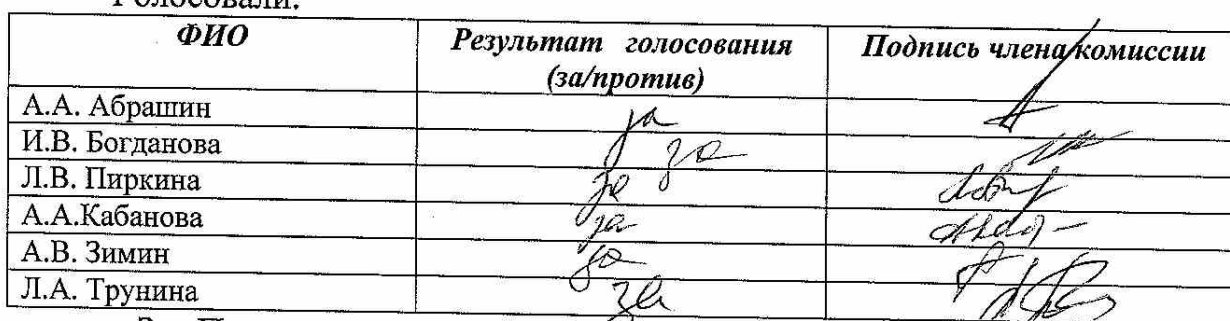 Голосовали:
ФИО Результат голосования (за/против) Подпись члена комиссии
А.А. Абрашин за
И.В. Богданова за
Л.В. Пиркина за
А.А.Кабанова за
А.В. Зимин за
Л.А. Трунина за